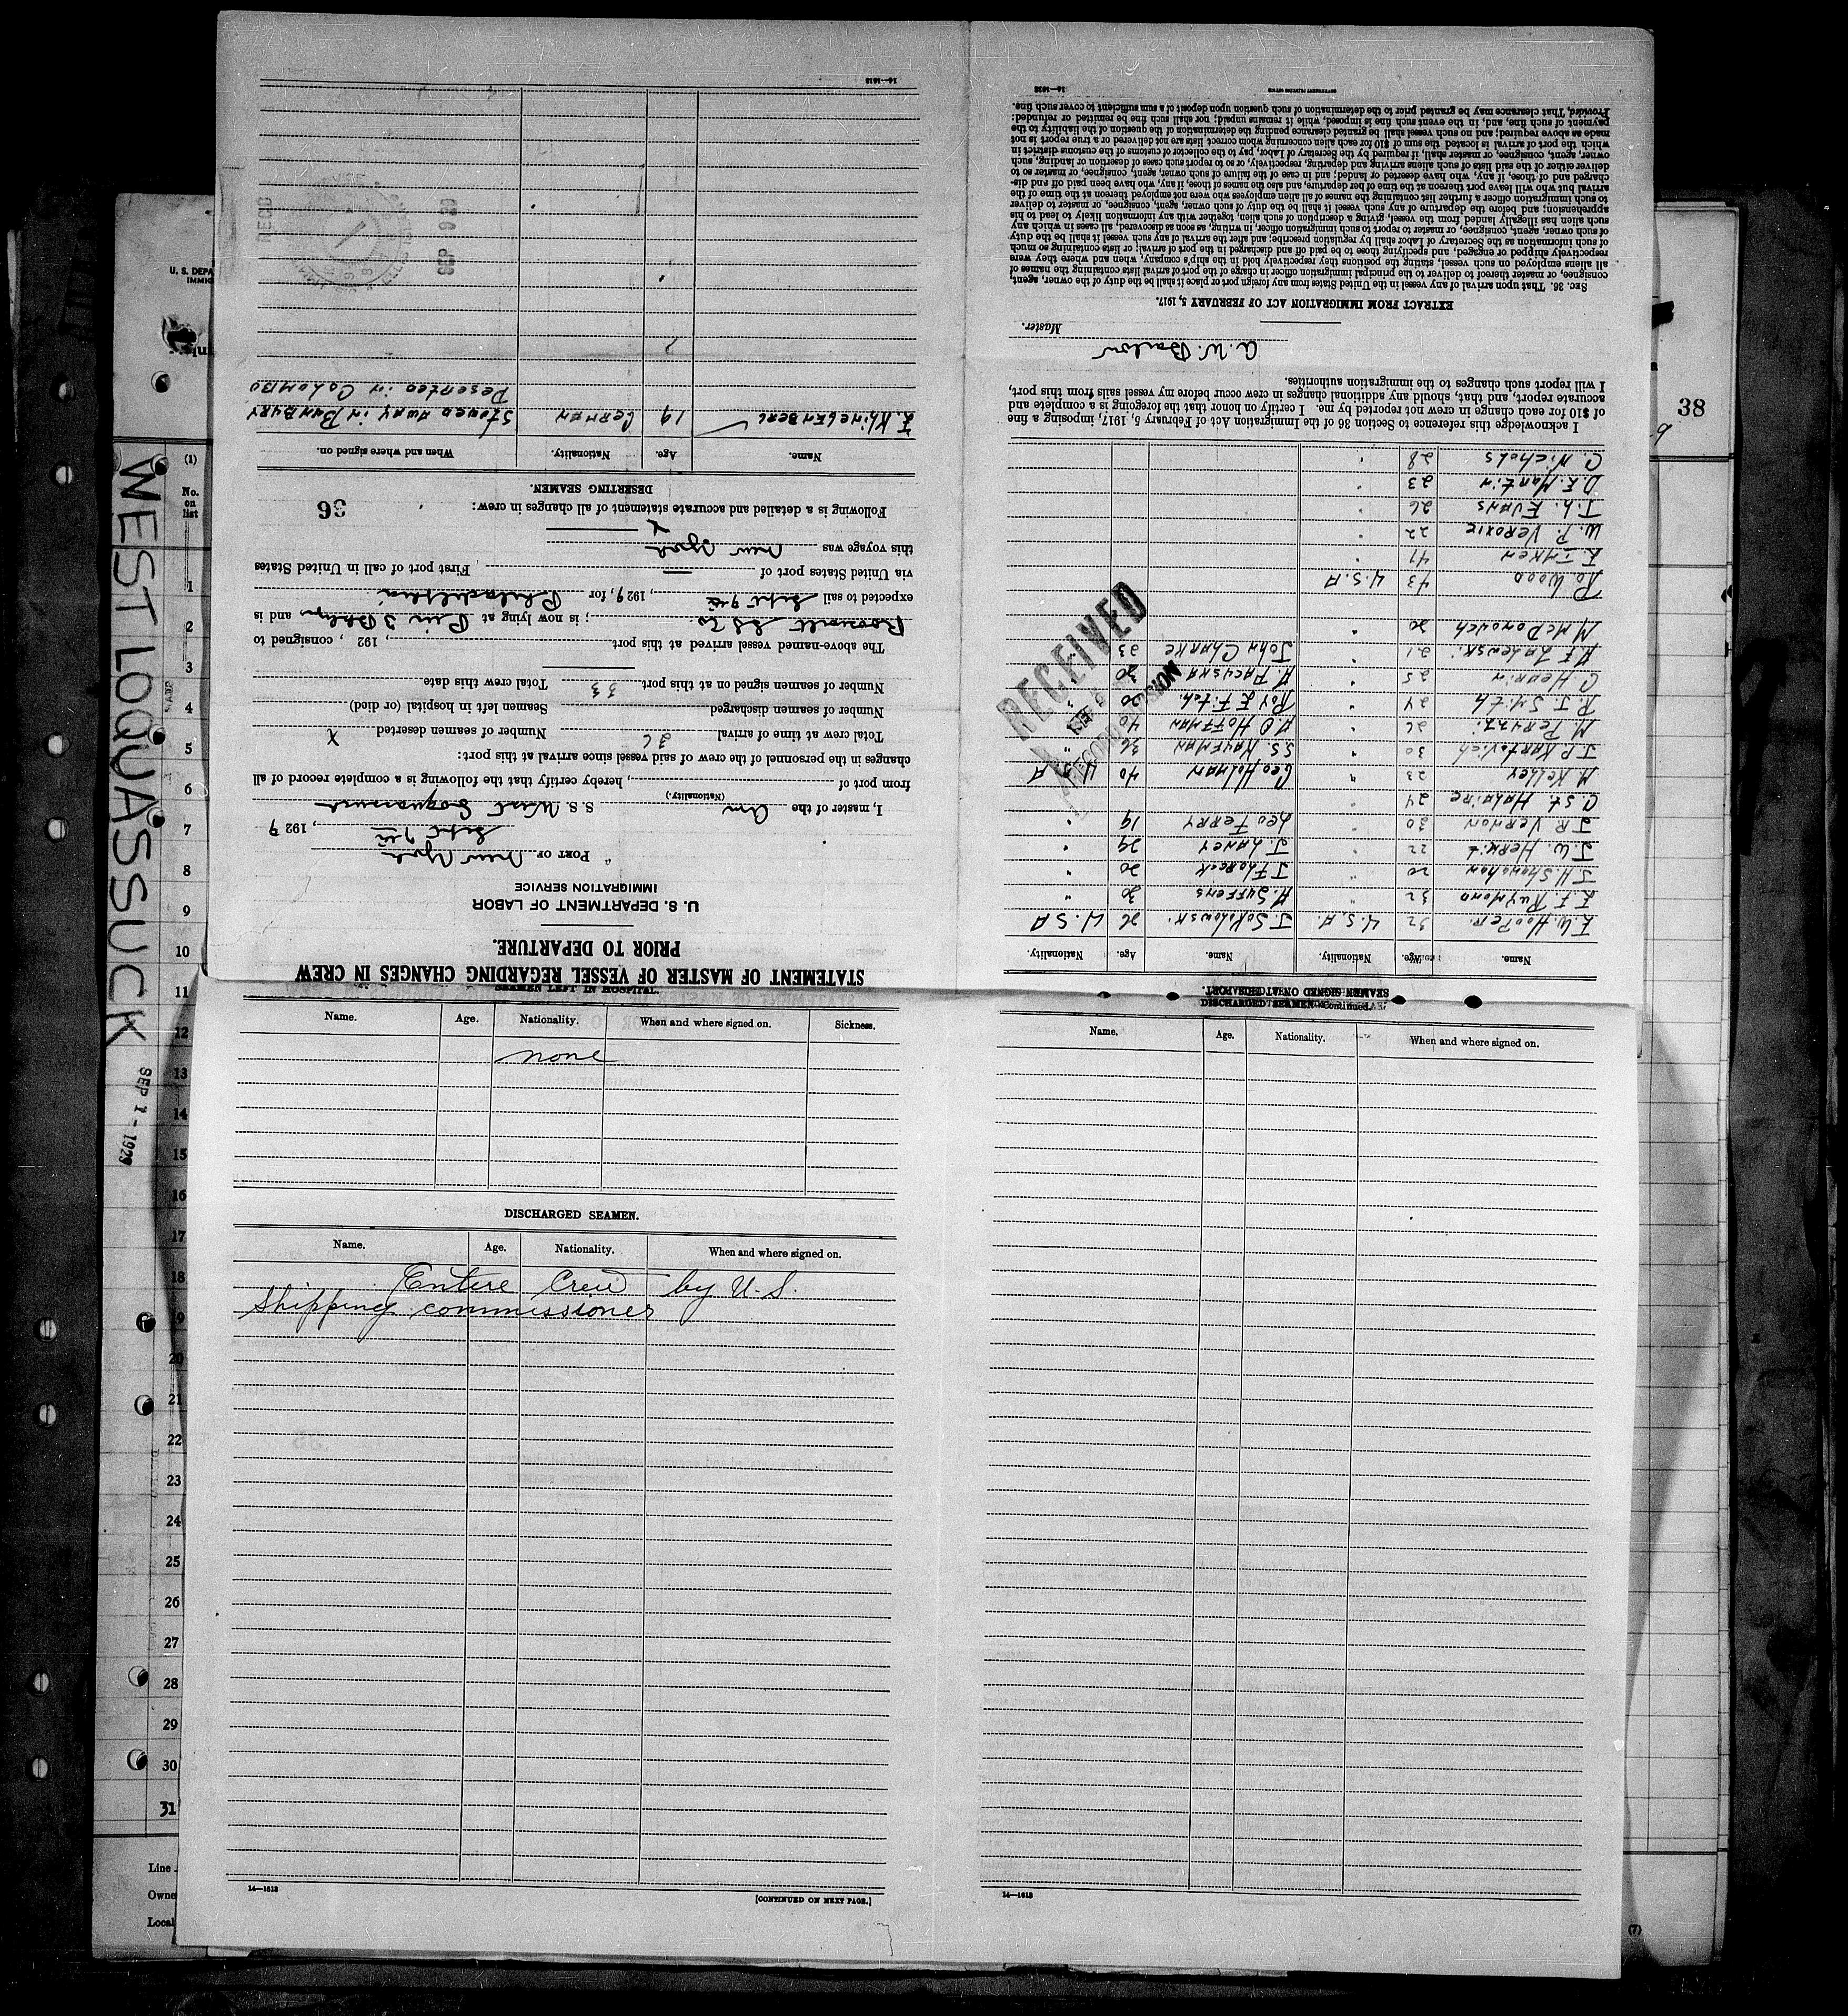 STATEMENT OF MASTER OF VESSEL REGARDING CHANGES IN CREW
PRIOR TO DEPARTURE.
U. S. DEPARTMENT OF LABOR
IMMIGRATION SERVICE
PORT OF New York
Sept 9th, 1929
I, master of the Am S. S. West Loquassuck
(Nationality.)
from port of , hereby certify that the following is a complete record of all
changes in the personnel of the crew of said vessel since arrival at this port:
Total crew at time of arrival 36 Number of seamen deserted X
Number of seamen discharged Seamen left in hospital (or died)
Number of seamen signed on at this port 33 Total crew this date
The above-named vessel arrived at this port , 192 , consigned to
Roosevelt SS Co ; is now lying at Pier 3 Bklyn and is
expected to sail Sept 9th , 1929, for Philadelphia
via United States port of — First port of call in United States
this voyage was New York
Following is a detailed and accurate statement of all changes in crew:
36
DESERTING SEAMEN.
Name. Age. Nationality. When and where signed on.
F. Klingenberg 19 German Stowed away in Bunbury
Deserted in Colombo
REC'D
SEP 9 29
14—1613
SEAMEN SIGNED ON AT THIS PORT.
Name. Age. Nationality. Name. Age. Nationality.
F. W. Hooper 32 U.S.A J. Sokolowski 26 U.S.A
E. F. Raymond 32 " H. Suffens 30 "
J. H. Shanahan 20 " J. Florcek 20 "
J. W. Herwit 22 " J. Laney 29 "
J. R. Vernon 30 " Leo Ferry 19 "
A. St. Halaire 24 "
M Kelley 23 " Geo Holman 40 U S A
J. P. Kartovich 30 " S.S Kaufman 36 "
M Peruzzi 26 " A O Hoffman 40 "
R. J. Smith 24 " Roy E Fitch 20 "
C Hearin 25 " A Pacuska 30
A. F. Zalewski 21 " John Clarke 23 "
M McDonovich 20 "
Ro Wood 43 U.S.A
F Imken 47 "
W. P. Veroxie 22 "
T. L. Evans 26 "
D. F. Martin 23 "
C. Nichols 28 "
RECEIVED
SEP 9
RECORD DIVISION
I acknowledge this reference to Section 36 of the Immigration Act of February 5, 1917, imposing a fine
of $10 for each change in crew not reported by me. I certify on honor that the foregoing is a complete and
accurate report, and that, should any additional changes in crew occur before my vessel sails from this port,
I will report such changes to the immigration authorities.
A. W. Barlow
Master.
EXTRACT FROM IMMIGRATION ACT OF FEBRUARY 5, 1917.
SEC. 36. That upon arrival of any vessel in the United States from any foreign port or place it shall be the duty of the owner, agent,
consignee, or master thereof to deliver to the principal immigration officer in charge of the port of arrival lists containing the names of
all aliens employed on such vessel, stating the positions they respectively hold in the ship's company, when and where they were
respectively shipped or engaged, and specifying those to be paid off and discharged in the port of arrival; or lists containing so much
of such information as the Secretary of Labor shall by regulation prescribe; and after the arrival of any such vessel it shall be the duty
of such owner, agent, consignee, or master to report to such immigration officer, in writing, as soon as discovered, all cases in which any
such alien has illegally landed from the vessel, giving a description of such alien, together with any information likely to lead to his
apprehension; and before the departure of any such vessel it shall be the duty of such owner, agent, consignee, or master to deliver
to such immigration officer a further list containing the names of all alien employees who were not employed thereon at the time of the
arrival but who will leave port thereon at the time of her departure, and also the names of those, if any, who have been paid off and dis-
charged and of those, if any, who have deserted or landed; and in case of the failure of such owner, agent, consignee, or master so to
deliver either of the said lists of such aliens arriving and departing, respectively, or so to report such cases of desertion or landing, such
owner, agent, consignee, or master shall, if required by the Secretary of Labor, pay to the collector of customs of the customs district in
which the port of arrival is located the sum of $10 for each alien concerning whom correct lists are not delivered or a true report is not
made as above required; and no such vessel shall be granted clearance pending the determination of the question of the liability to the
payment of such fine, and, in the event such fine is imposed, while it remains unpaid; nor shall such fine be remitted or refunded:
Provided, That clearance may be granted prior to the determination of such question upon deposit of a sum sufficient to cover such fine.
14—1613 GOVERNMENT PRINTING OFFICE
SEAMEN LEFT IN HOSPITAL.
Name. Age. Nationality. When and where signed on. Sickness.
none
DISCHARGED SEAMEN.
Name. Age. Nationality. When and where signed on.
Entire Crew by U. S.
Shipping commissioner
14—1613
[CONTINUED ON NEXT PAGE.]
DISCHARGED SEAMEN—Continued.
Name. Age. Nationality. When and where signed on.
14—1613
WEST LOQUASSUCK
SEP 1 - 1929
U. S. DEPA
IMMIG
(1)
No.
on
list
1
2
3
4
5
6
7
8
9
10
11
12
13
14
15
16
17
18
19
20
21
22
23
24
25
26
27
28
29
30
31
Line
Owne
Local
38
(7)